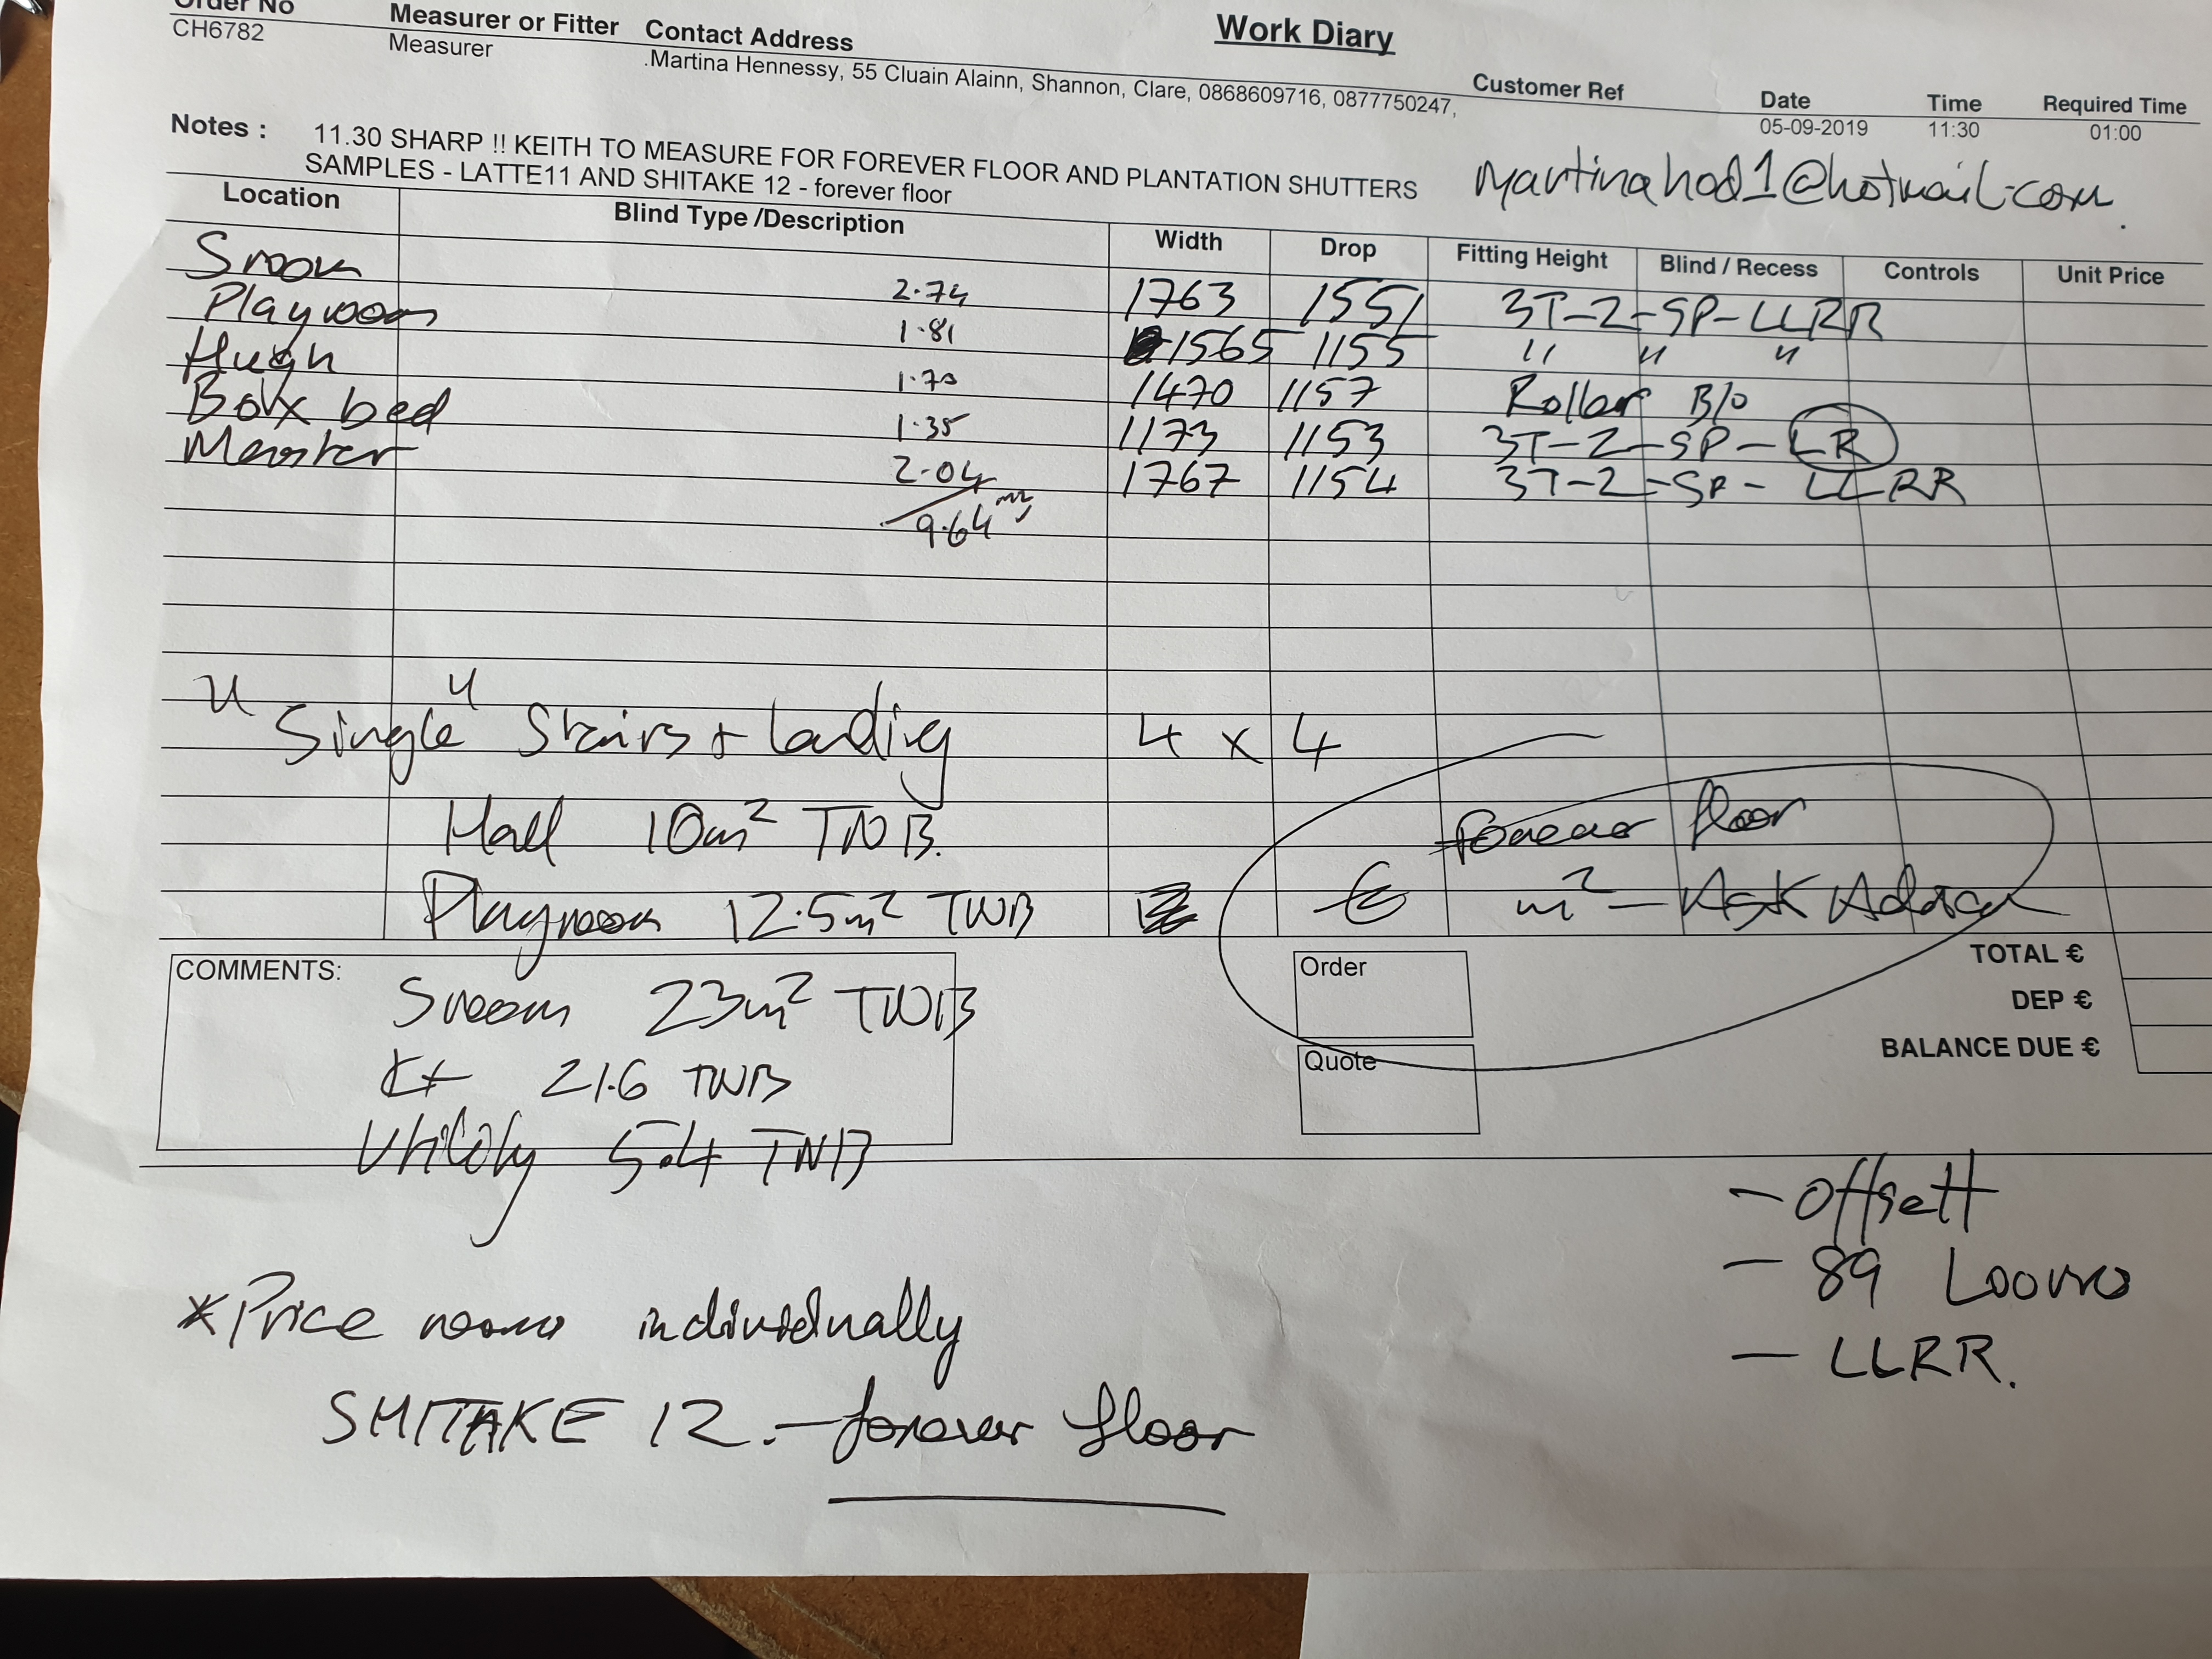 Order No Measurer or Fitter Contact Address Work Diary Customer Ref Date Time Required Time
CH6782 Measurer .Martina Hennessy, 55 Cluain Alainn, Shannon, Clare, 0868609716, 0877750247, 05-09-2019 11:30 01:00
Notes : 11.30 SHARP !! KEITH TO MEASURE FOR FOREVER FLOOR AND PLANTATION SHUTTERS
SAMPLES - LATTE11 AND SHITAKE 12 - forever floor
martinahod1@hotmail.com
Location Blind Type /Description Width Drop Fitting Height Blind / Recess Controls Unit Price
Sroom 2.74 1763 1551 3T-2-SP-LLRR
Playroom 1.81 1565 1155 " " "
Hugh 1.70 1470 1157 Roller B/o
Box bed 1.35 1173 1153 3T-2-SP-LR
Master 2.04 1767 1154 3T-2-SP-LLRR
9.64 m2
"Single" Stairs + landing 4 x 4
Hall 10m² TNB.
forever floor
Playroom 12.5m² TWB € m² - Ask
COMMENTS:
Sroom 23m² TWB
Kt 21.6 TWB
Utility 5.4 TNB
Order
Quote
TOTAL €
DEP €
BALANCE DUE €
- offsett
- 89 Loovre
- LLRR.
*Price rooms individually
SHITAKE 12. - forever floor